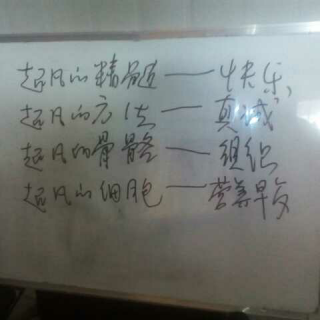 超凡的精髓——快乐
超凡的方法——真诚
超凡的骨骼——组织
超凡的细胞——营养早餐